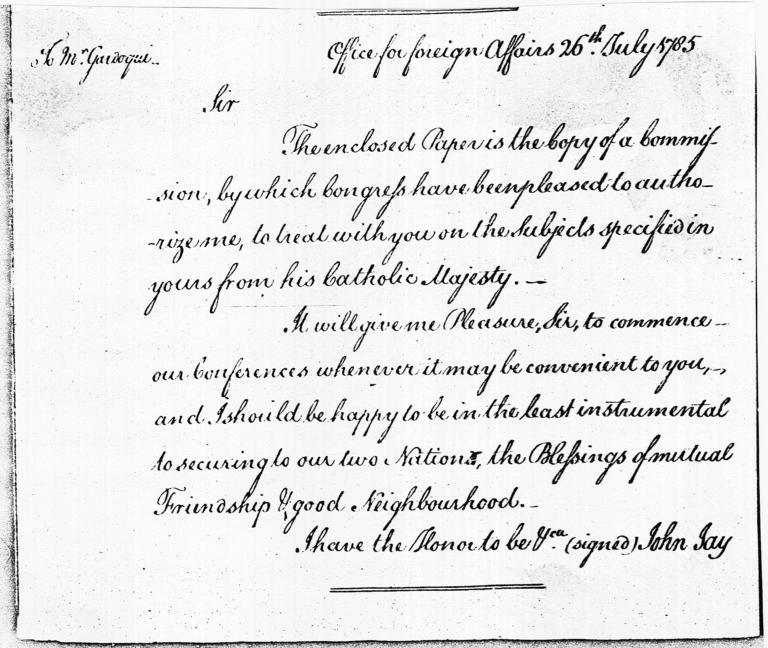 To Mr. Gardoqui_
Office for foreign Affairs 26th. July 1785
Sir
The enclosed Paper is the Copy of a Commis-
-sion, by which Congress have been pleased to autho-
-rize me, to treat with you on the Subjects specified in
yours from his Catholic Majesty. —
It will give me Pleasure, Sir, to commence
our Conferences whenever it may be convenient to you, -
and I should be happy to be in the least instrumental
to securing to our two Nations, the Blessings of mutual
Friendship & good Neighbourhood. -
I have the Honor to be &ca. (signed) John Jay